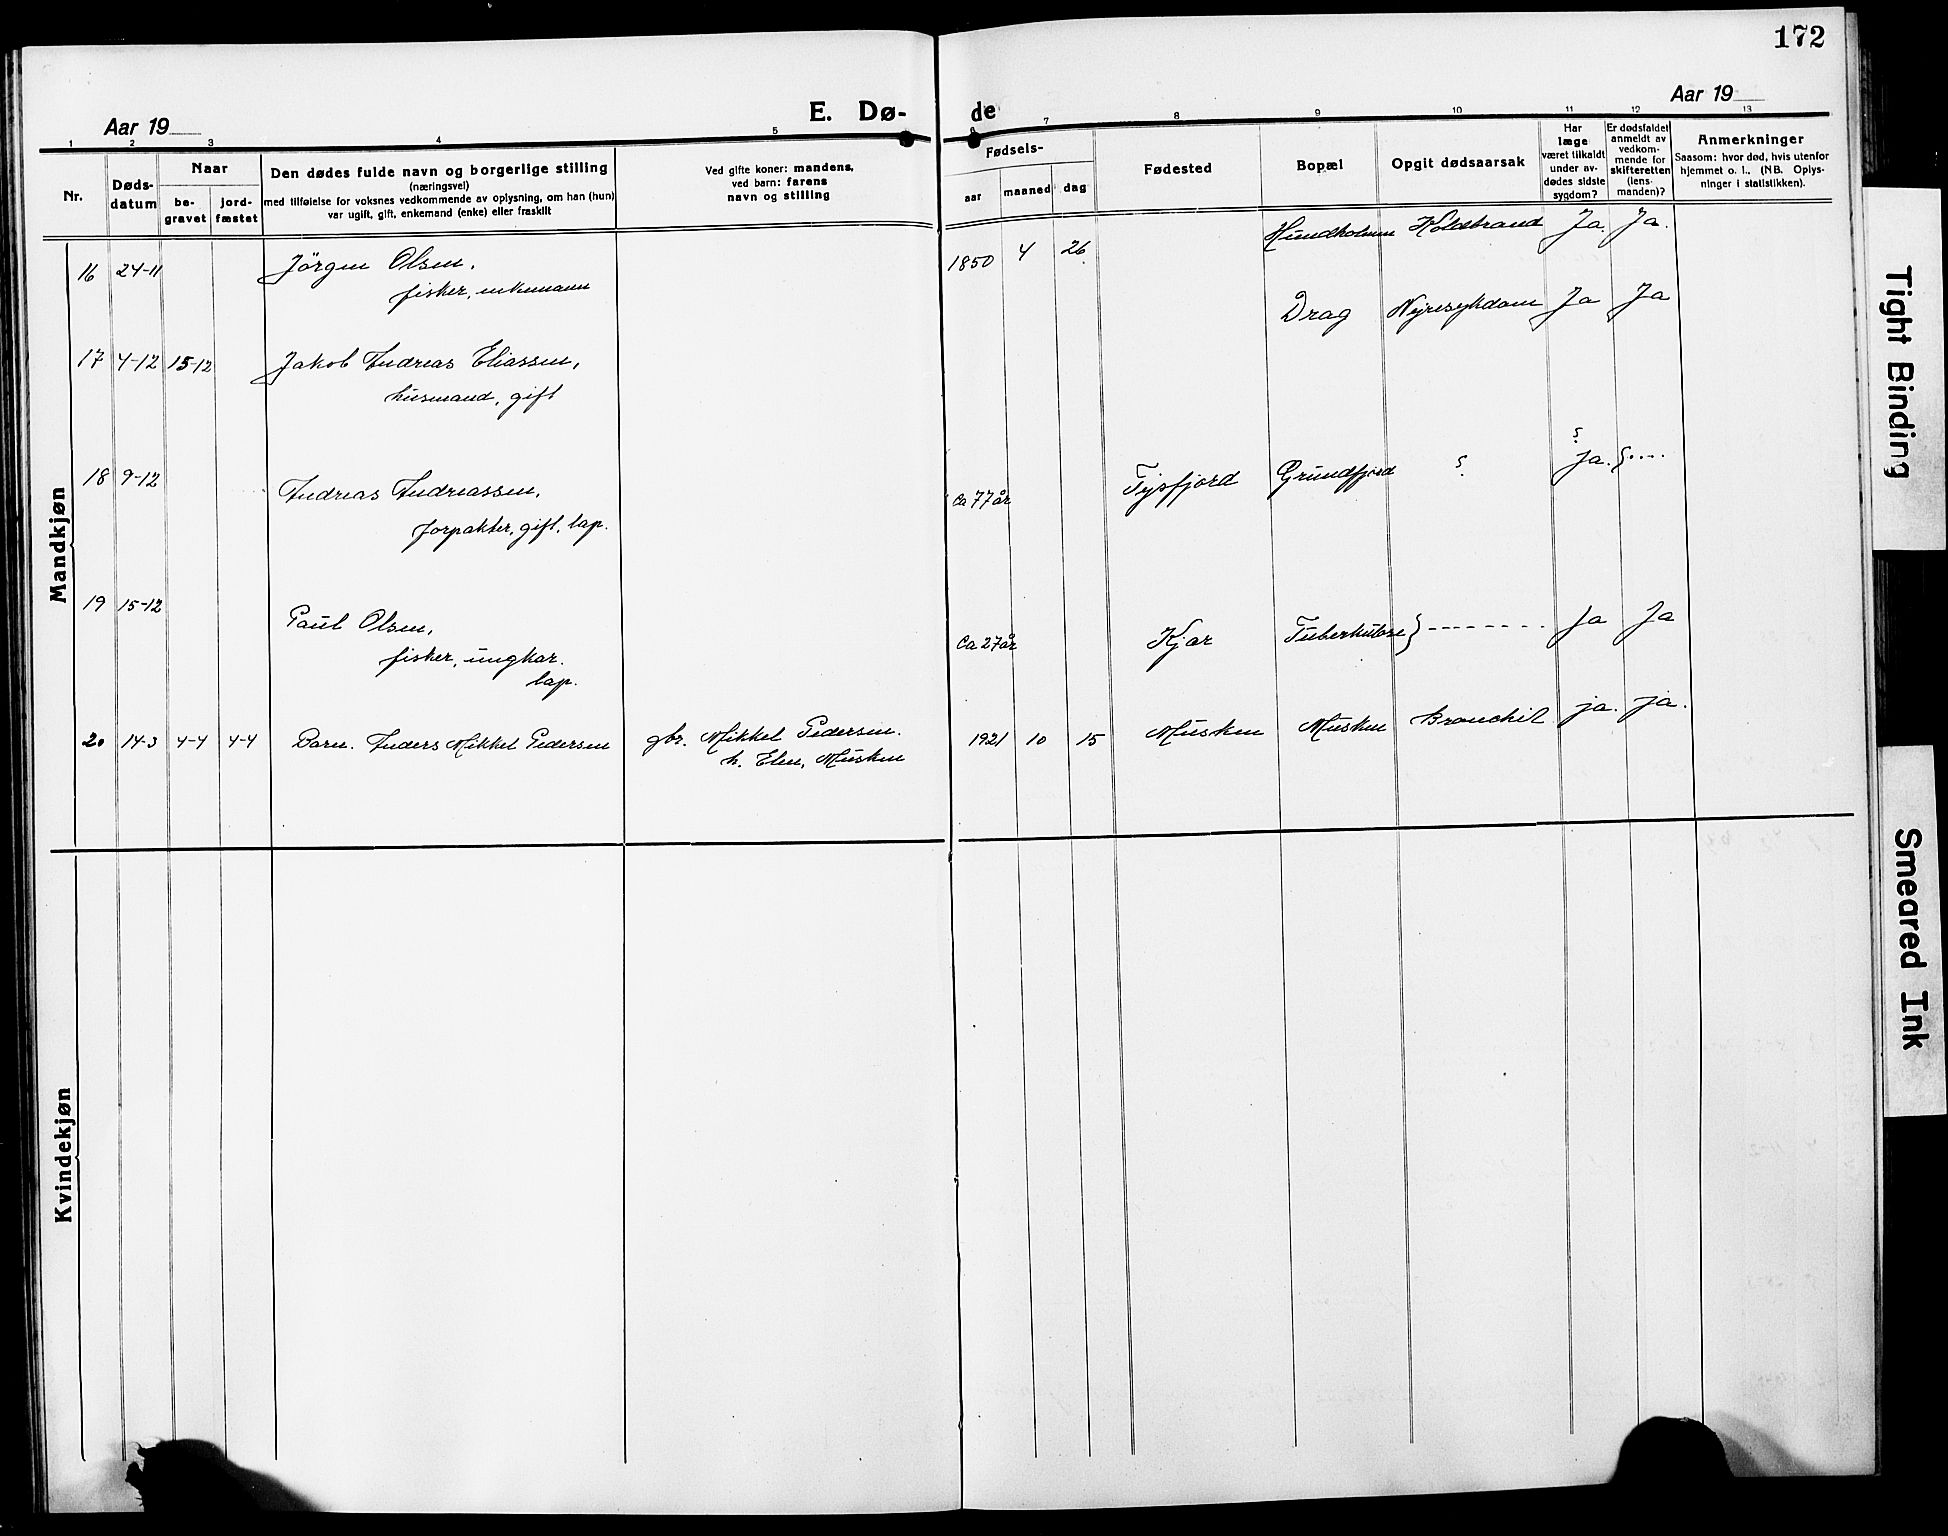 172
Aar 19
E. Dø-
de
Aar 19
1 2 3 4 5 6 7 8 9 10 11 12 13
Nr.
Døds-
datum
Naar
be-
gravet
jord-
fæstet
Den dødes fulde navn og borgerlige stilling
(næringsvei)
med tilføielse for voksnes vedkommende av oplysning, om han (hun)
var ugift, gift, enkemand (enke) eller fraskilt
Ved gifte koner: mandens,
ved barn: farens
navn og stilling
Fødsels-
aar
maaned
dag
Fødested
Bopæl
Opgit dødsaarsak
Har
læge
været tilkaldt
under av-
dødes sidste
sygdom?
Er dødsfaldet
anmeldt av
vedkom-
mende for
skifteretten
(lens-
manden)?
Anmerkninger
Saasom: hvor død, hvis utenfor
hjemmet o. l.. (NB. Oplys-
ninger i statistikken).
Mandkjøn
16 24-11 Jörgen Olsen, 1850 4 26 Hundholmen Koldbrand Ja. Ja.
fisker, enkemann
17 4-12 15-12 Jakob Andreas Eliassen, Drag Nyresykdom Ja Ja
husmand, gift
18 9-12 Andreas Andreassen, ca 77 år Tysfjord Grundfjord ? ja.
forpakter, gift, lap.
19 15-12 Paul Olsen, ca 27 år Kjør Tuberkulose } - - - - - - - - Ja Ja
fisker, ungkar.
lap.
20 14-3 4-4 4-4 Barn. Anders Mikkel Pedersen gbr. Mikkel Pedersen. 1921 10 15 Musken Musken Bronchit ja. ja.
h. Elen, Musken
Kvindekjøn
Tight Binding
Smeared Ink